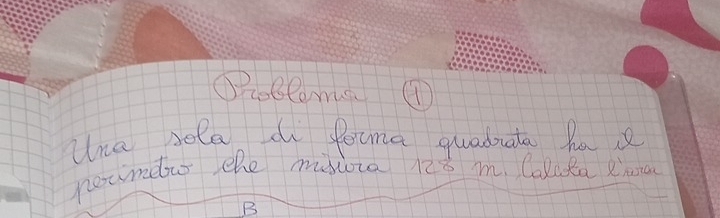 Problema 1
Una sola di forma quadrata ha il
perimetro che misura 128 m. Calcola l'area
B